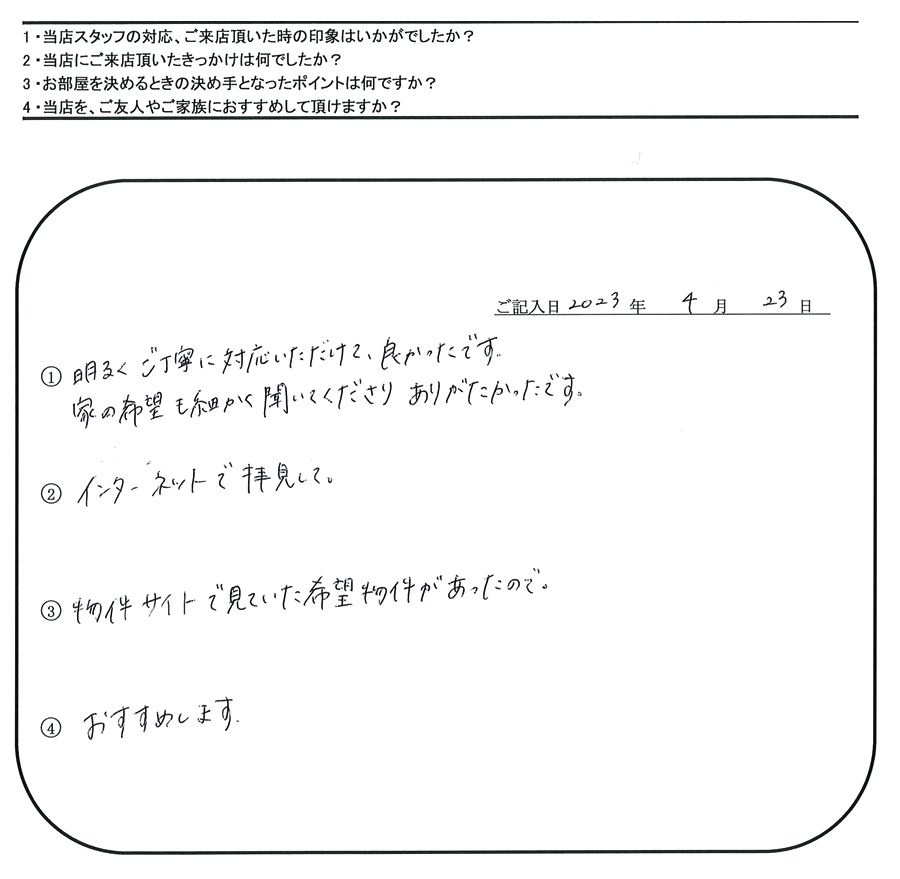 1・当店スタッフの対応、ご来店頂いた時の印象はいかがでしたか？
2・当店にご来店頂いたきっかけは何でしたか？
3・お部屋を決めるときの決め手となったポイントは何ですか？
4・当店を、ご友人やご家族におすすめして頂けますか？
ご記入日 2023 年 4 月 23 日
① 明るくご丁寧に対応いただけて、良かったです。
家の希望も細かく聞いてくださりありがたかったです。
② インターネットで拝見して。
③ 物件サイトで見ていた希望物件があったので。
④ おすすめします。